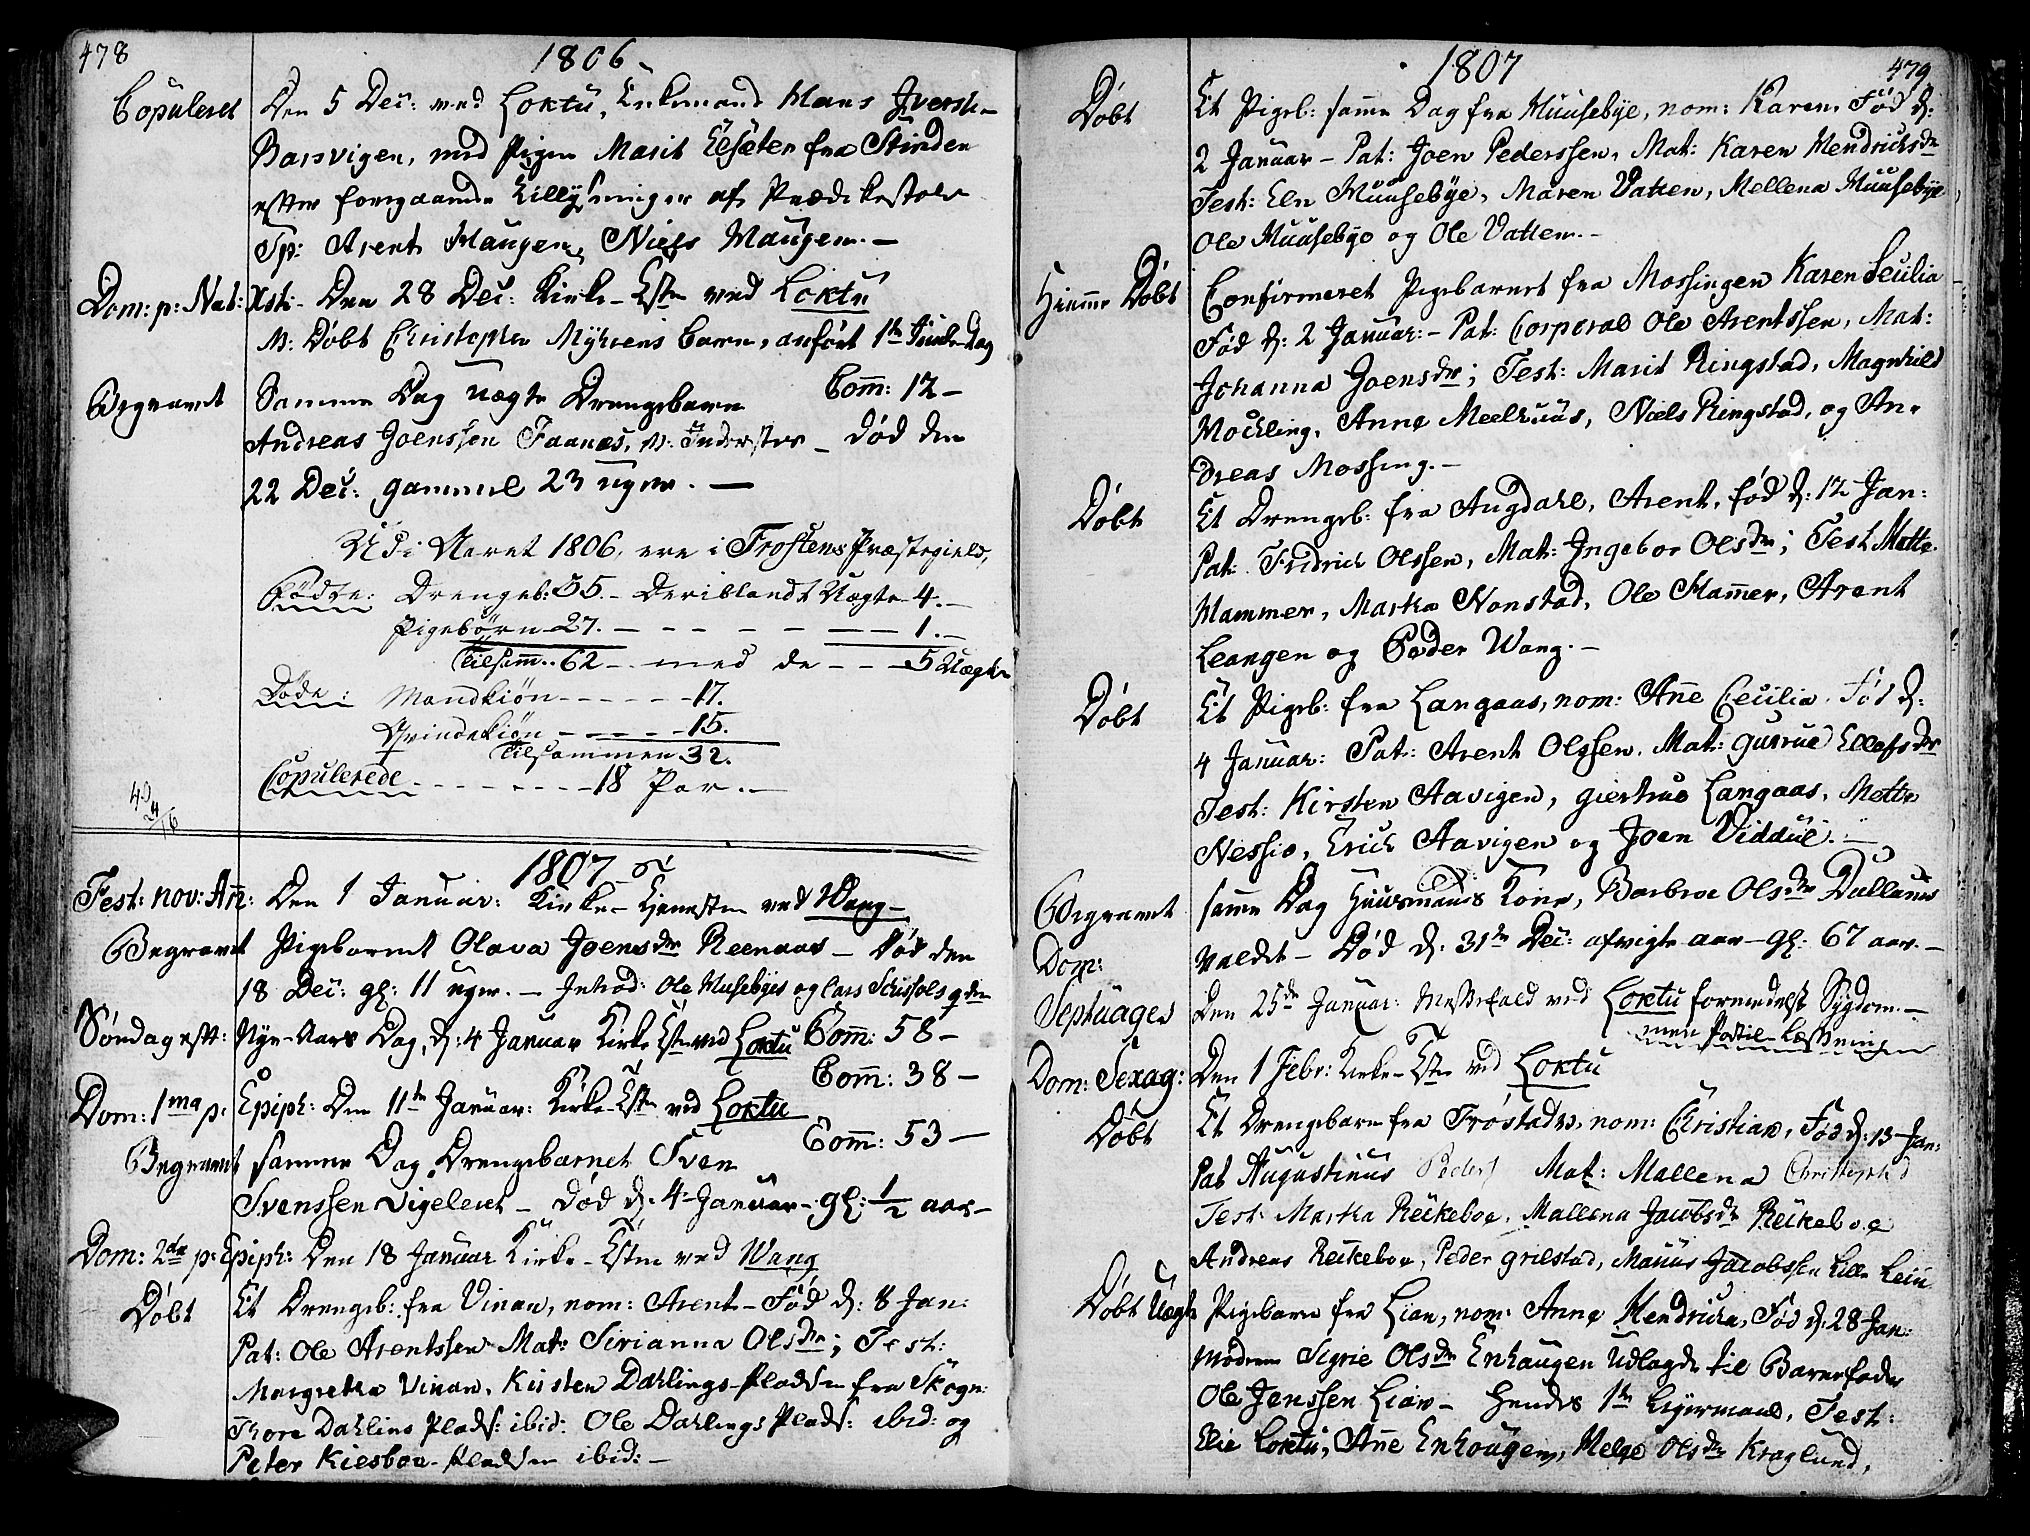 478
1806
Copuleret Den 5 Dec: ved Loktu, Enkemand Hans Iverss-
Barsvigen, med Pigen Marit Elsæter fra Stinden
efter foregaaende Tillysninger af Prædikestolen
Sp: Arent Haugen, Niels Haugen.-
Dom: p: Nat: Xsti- Den 28 Dec: Kirke-Tst ved Loktu
N: Døbt Christopher Myhrens Barn, anført 1te Juule Dag
Begravet Samme Dag uægte Drengebarn Com̄: 12-
Andreas Joenssen Faanes, N: Inderster - død den
22 Dec: gammel 23 uger.-
Udi Aaret 1806, ere i Frostens Præstegield,
Fødte: Drengeb: 35.- Deriblandt Uægte 4.-
Pigebørn 27. - - - - 1.-
Tilsam̄: 62 - med de - - - 5 Uægte
Døde: Mandkiøn - - - - 17.
Qvindekiøn - - - - 15.
Tilsammen 32.
Copulerede - - - - - 18 Par.-
1807
Fest: nov: An̄: Den 1 Januar: Kirke-Tjenesten ved Wang-
Begravet Pigebarnet Olava Joensdr Reenaas - Død den
18 Dec: gl: 11 uger.- Introd: Ole Musebyes og Lars
Søndag eft: Nye-Aars Dag, d: 4 Januar Kirke Tst ved Loktu Com̄: 58-
Com̄: 38-
Dom: 1ma p: Epiph: Den 11te Januar: Kirke-Tst ved Loktu
Com̄: 53-
Begravet samme Dag Drengebarnet Sven
Svenssen Vigeleret - Død d: 4 Januar - gl: 1/2 aar-
Dom: 2da p: Epiph: Den 18 Januar Kirke-Tsten ved Wang
Døbt Et Drengeb: fra Vinan, nom: Arent - Fød d: 8 Jan:
Pat: Ole Arentssen Mat: Sirianna Olsdr; Test:
Margretha Vinan, Kirsten Dahlings-Pladsen fra Skogn
Thore Dahlins Plads: ibid: Ole Dahlings Plads: ibid: og
Peter Kiesboe-Pladsen ibid:-
1807
479
Døbt Et Pigeb: samme Dag fra Muusebye, nom: Karen, Fød d:
2 Januar - Pat: Joen Pederssen, Mat: Karen Hendrichsdr
Test: Eln Muusebye, Maren Vatten, Mellena Muusebye
Ole Muusebye og Ole Vatten.-
Hiemme Døbt Confirmeret Pigebarnet fra Mossingen Karen Secilia
Fød d: 2 Januar:- Pat: Corporal Ole Arentssen, Mat:
Johanna Joensdr; Test: Marit Ringstad, Magnhild
Mockling, Anne Meelhuus, Niels Ringstad, og An-
dreas Mossing.-
Døbt Et Drengeb: fra Augdahl, Arent, fød d: 12 Jan:
Pat: Fridrich Olssen, Mat: Ingebor Olsdr; Test Mette
Hammer, Martha Nonstad, Ole Ham̄er, Arent
Leangen og Peder Wang.-
Døbt Et Pigeb: fra Langaas, nom: An̄e Cecilia. Fød d:
4 Januar: Pat: Arent Olssen. Mat: Gurrue Ellefsdr
Test: Kirsten Aavigen, Giertrue Langaas, Mette
Nessie, Erich Aavigen og Joen Viddul.-
Begravet samme Dag Huusmands Kone, Barbroe Olsdr Dullum
valdet - Død d: 31te Dec: afvigte aar - gl: 67 aar.-
Dom:
Septuages Den 25de Januar: Messefald ved Loktu formedelst Sygdom.-
men Postil-Læsningen
Dom: Sexag: Den 1 Febr: Kirke-Tst ved Loktu
Døbt Et Drengebarn fra Trøstades, nom: Christian, Fød d: 13 Jan:
Pat Augustinus Peders Mat: Mallena
Test: Martha Reikeboe, Mallena Jacobsdr Reikeboe
Andreas Reikeboe, Peder Grilstad, Mauus Jacobssen Lille Lein
Døbt Uægte Pigebarn fra Lian, nom: Anne Hendricha, Fød d: 28 Jan:
Moderen Sigrie Olsdr Enhaugen Udlagde til Barnefader
Ole Jenssen Lian - Hendes 1te Leiermaal, Test:
Elie Loktu, An̄e Enhougen, Helge Olsdr Kraglund,